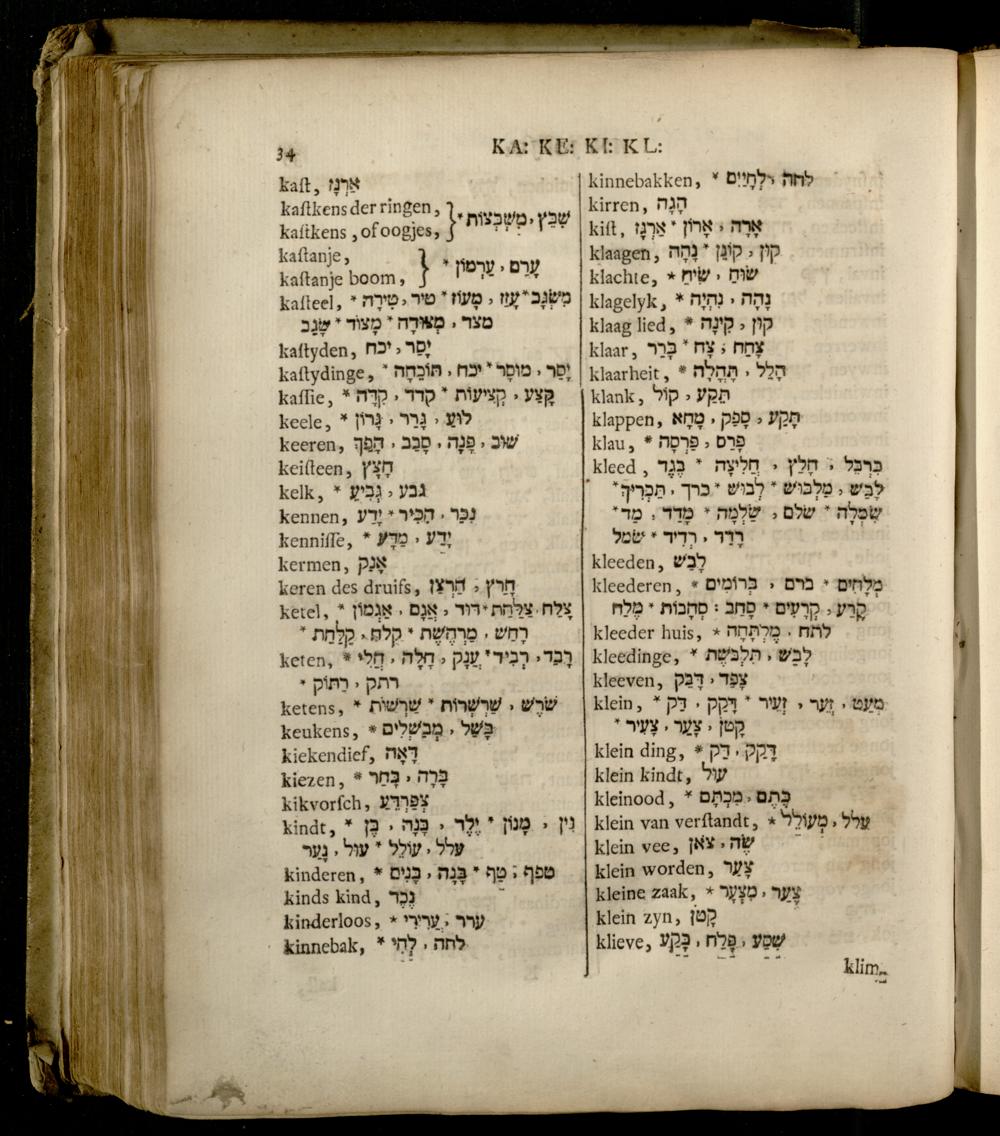 34
KA: KE: KI: KL:
kaſt, אַרְגָּז
kaſtkens der ringen,
kaſtkens, of oogjes, } * שָׁבַּץ, מִשְׁבְּצוֹת
kaſtanje,
kaſtanje boom, } * עָרַם, עַרְמוֹן
kaſteel, * מִשְׂגָּב * עָזַז, מָעוֹז * טיר, טִירָה
מצר, מְצוּדָה * מָצוֹד * שָׂגַב
kaſtyden, יָסַר, יכח
kaſtydinge, * יָסַר, מוּסָר * יכח, תּוֹכֵחָה
kaſſie, * קָצַע, קְצִיעוֹת * קדד, קִדָּה
keele, * לוּעַ, גָּרַר, גָּרוֹן
keeren, שׁוּב, פָּנָה, סָבַב, הָפַךְ
keiſteen, חָצָץ
kelk, * גבע, גְּבִיעַ
kennen, נִכַּר, הִכִּיר * יָדַע
kenniſſe, * יָדַע, מַדָּע
kermen, אָנַק
keren des druifs, חָרַץ, חַרְצַן
ketel, * צָלַח, צַלַּחַת * דּוּד, אָגַם, אַגְמוֹן
רָחַשׁ, מַרְחֶשֶׁת * קלח, קַלַּחַת *
keten, * רָבַד, רְבִיד * עֲנָק, חָלָה, חֲלִי
רתק, רַתּוֹק *
ketens, * שֹׁרֶשׁ, שַׁרְשְׁרוֹת * שַׁרְשׁוֹת
keukens, * בָּשַׁל, מְבַשְּׁלִים
kiekendief, דָּאָה
kiezen, * בָּרָה, בָּחַר
kikvorſch, צְפַרְדֵּעַ
kindt, * נִין, מָנוֹן * יֶלֶד, בָּנָה, בֵּן
עלל, עוֹלֵל * עוּל, נָעַר
kinderen, * טפף, טַף * בָּנָה, בָּנִים
kinds kind, נֶכֶד
kinderloos, * ערר, עֲרִירִי
kinnebak, * לחה, לְחִי
kinnebakken, * לחה, לְחָיַיִם
kirren, הָגָה
kiſt, אָרָה, אָרוֹן * אַרְגָּז
klaagen, קוּן, קוֹנֵן * נָהָה
klachte, * שׂוּחַ, שִׂיחַ
klagelyk, * נָהָה, נִהְיָה
klaag lied, * קוּן, קִינָה
klaar, צָחַח, צַח * בָּרַר
klaarheit, * הָלַל, תְּהִלָּה
klank, תָּקַע, קוֹל
klappen, תָּקַע, סָפַק, מָחָא
klau, * פָּרַס, פַּרְסָה
kleed, כִּרְבֵּל, חָלַץ, חֲלִיצָה * בֶּגֶד
לָבַשׁ, מַלְבּוּשׁ * לְבוּשׁ * כרך, תַּכְרִיךְ *
שִׂמְלָה * שׂלם, שַׂלְמָה * מָדַד, מַד *
רָדַד, רְדִיד * שׂמל
kleeden, לָבַשׁ
kleederen, * מְלָחִים * ברם, בְּרוֹמִים
קָרַע, קְרָעִים * סָחַב: סְחָבוֹת * מָלַח
kleeder huis, * לתח, מֶלְתָּחָה
kleedinge, * לָבַשׁ, תִּלְבֹּשֶׁת
kleeven, צָפַד, דָּבַק
klein, * מְעַט, זָעַר, זְעֵיר * דָּקַק, דַּק
קָטֹן, צָעַר, צָעִיר *
klein ding, * דָּקַק, דַּק
klein kindt, עוּל
kleinood, * כָּתַם, מִכְתָּם
klein van verſtandt, * עלל, מְעוֹלֵל
klein vee, שֶׂה, צֹאן
klein worden, צָעַר
kleine zaak, * צָעַר, מִצְעָר
klein zyn, קָטֹן
klieve, שָׁסַע, פָּלַח, בָּקַע
klim-